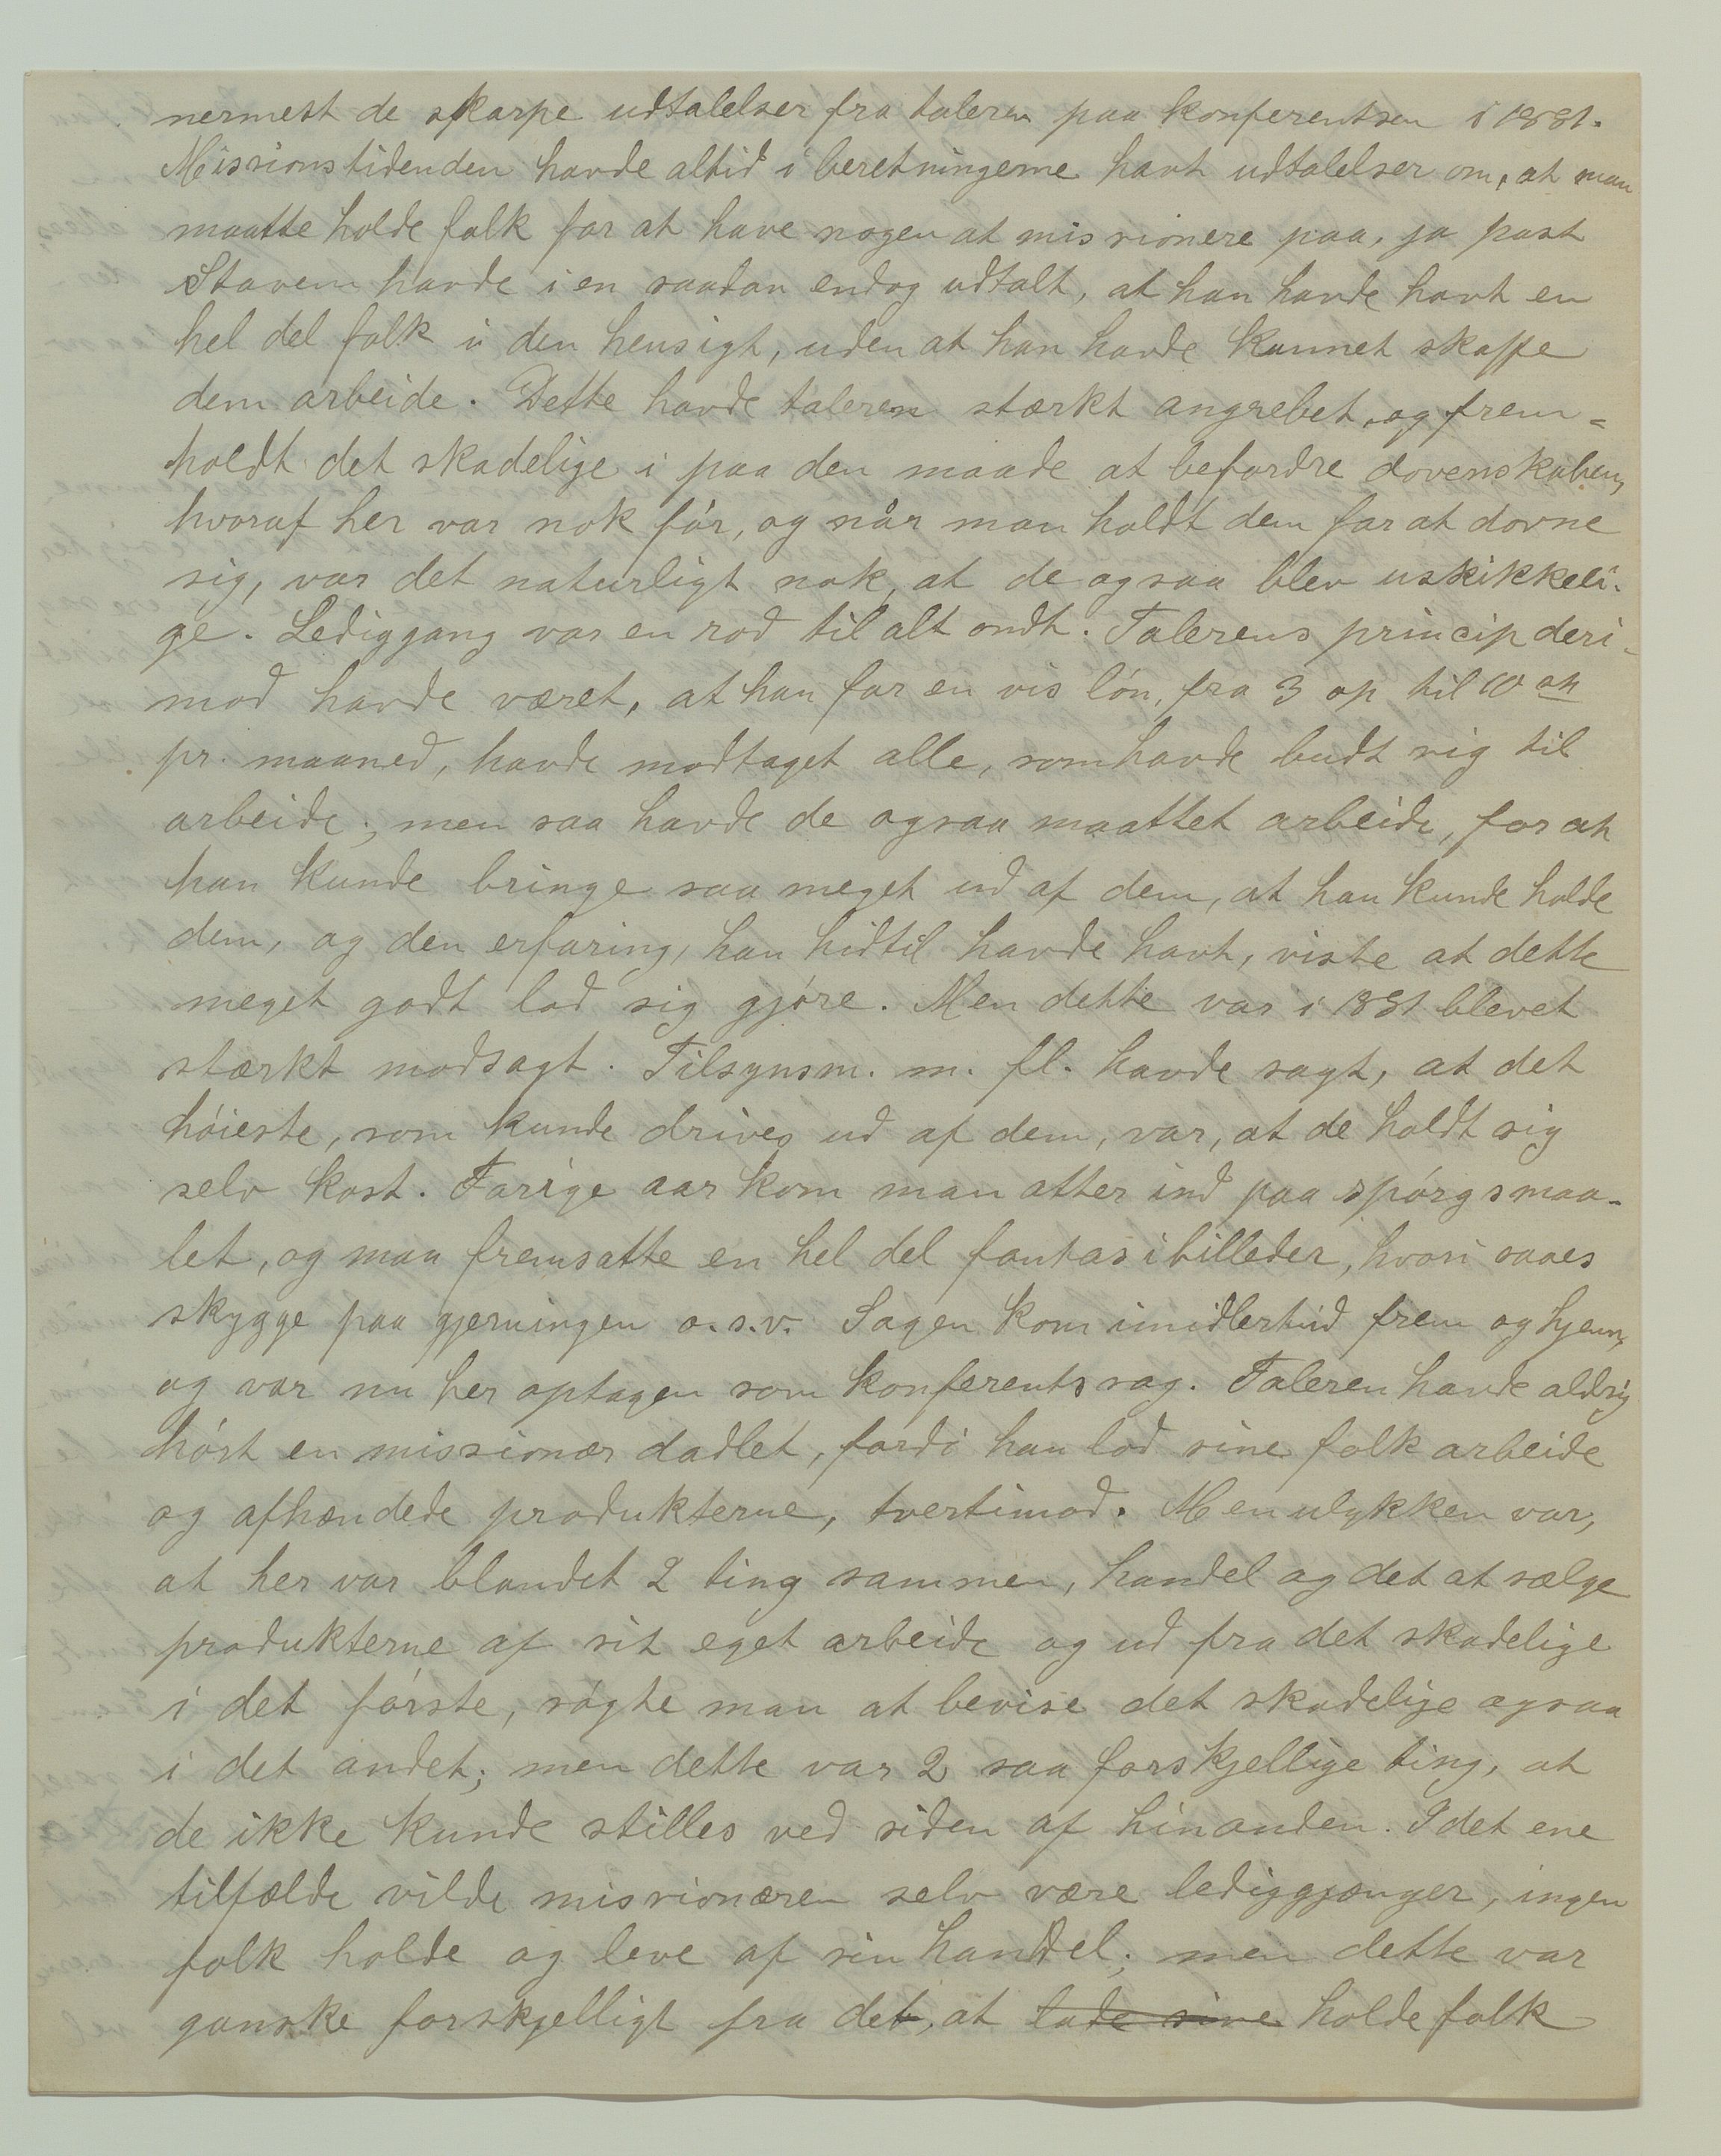 nermest de skarpe udtalelser fra taleren paa konferentsen i 1881.
Missionstidenden havde altid i beretningerne havt udtalelser om, at man
maatte holde folk for at have nogen at missionere paa, ja past
Stavem havde i en saadan endog udtalt, at han havde havt en
hel del folk i den hensigt, uden at han havde kunnet skaffe
dem arbeide. Dette havde taleren stærkt angrebet, og frem=
holdt det skadelige i paa den maade at befordre dovenskaben,
hvoraf her var nok fór, og når man holdt dem for at dovne
sig, var det naturligt nok, at de ogsaa blev uskikkeli-
ge. Lediggang var en rod til alt ondt. Talerens princip deri-
mod havde været, at han for en vis lón, fra 3 op til 10 sh
pr. maaned, havde modtaget alle, som havde budt sig til
arbeide; men saa havde de ogsaa maattet arbeide, for at
han kunde bringe saa meget ud af dem, at han kunde holde
dem, og den erfaring, han hidtil havde havt, viste at dette
meget godt lod sig gjóre. Men dette var i 1881 blevet
stærkt modsagt. Tilsynsm. m. fl. havde sagt, at det
hóieste, som kunde drives ud af dem, var, at de holdt sig
selv kost. Forige aar kom man atter ind paa spórgsmaa-
let, og man fremsatte en hel del fantasibilleder, hvori saaes
skygge paa gjerningen o.s.v. Sagen kom imidlertid frem og hjem,
og var nu her optagen som konferentssag. Taleren havde aldrig
hórt en missionær dadlet, fordi han lod sine folk arbeide
og afhændede produkterne, tvertimod. Men ulykken var,
at her var blandet 2 ting sammen, handel og det at sælge
produkterne af sit eget arbeide og ud fra det skadelige
i det fórste, sógte man at bevise det skadelige ogsaa
i det andet; men dette var 2 saa forskjellige ting, at
de ikke kunde stilles ved siden af hinanden. I det ene
tilfælde vilde missionæren selv være lediggjænger, ingen
folk holde og leve af sin handel; men dette var
ganske forskjelligt fra det, at lade sine holde folk